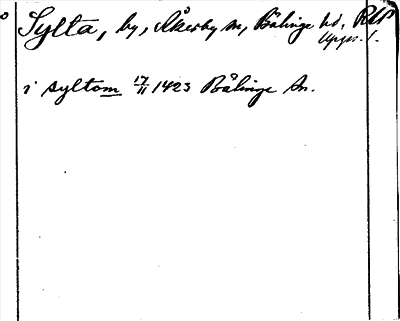 Sylta, by, Åkerby sn, Bälinge hd, Upps. l.
i syltom 17/11 1423 Bälinge sn.